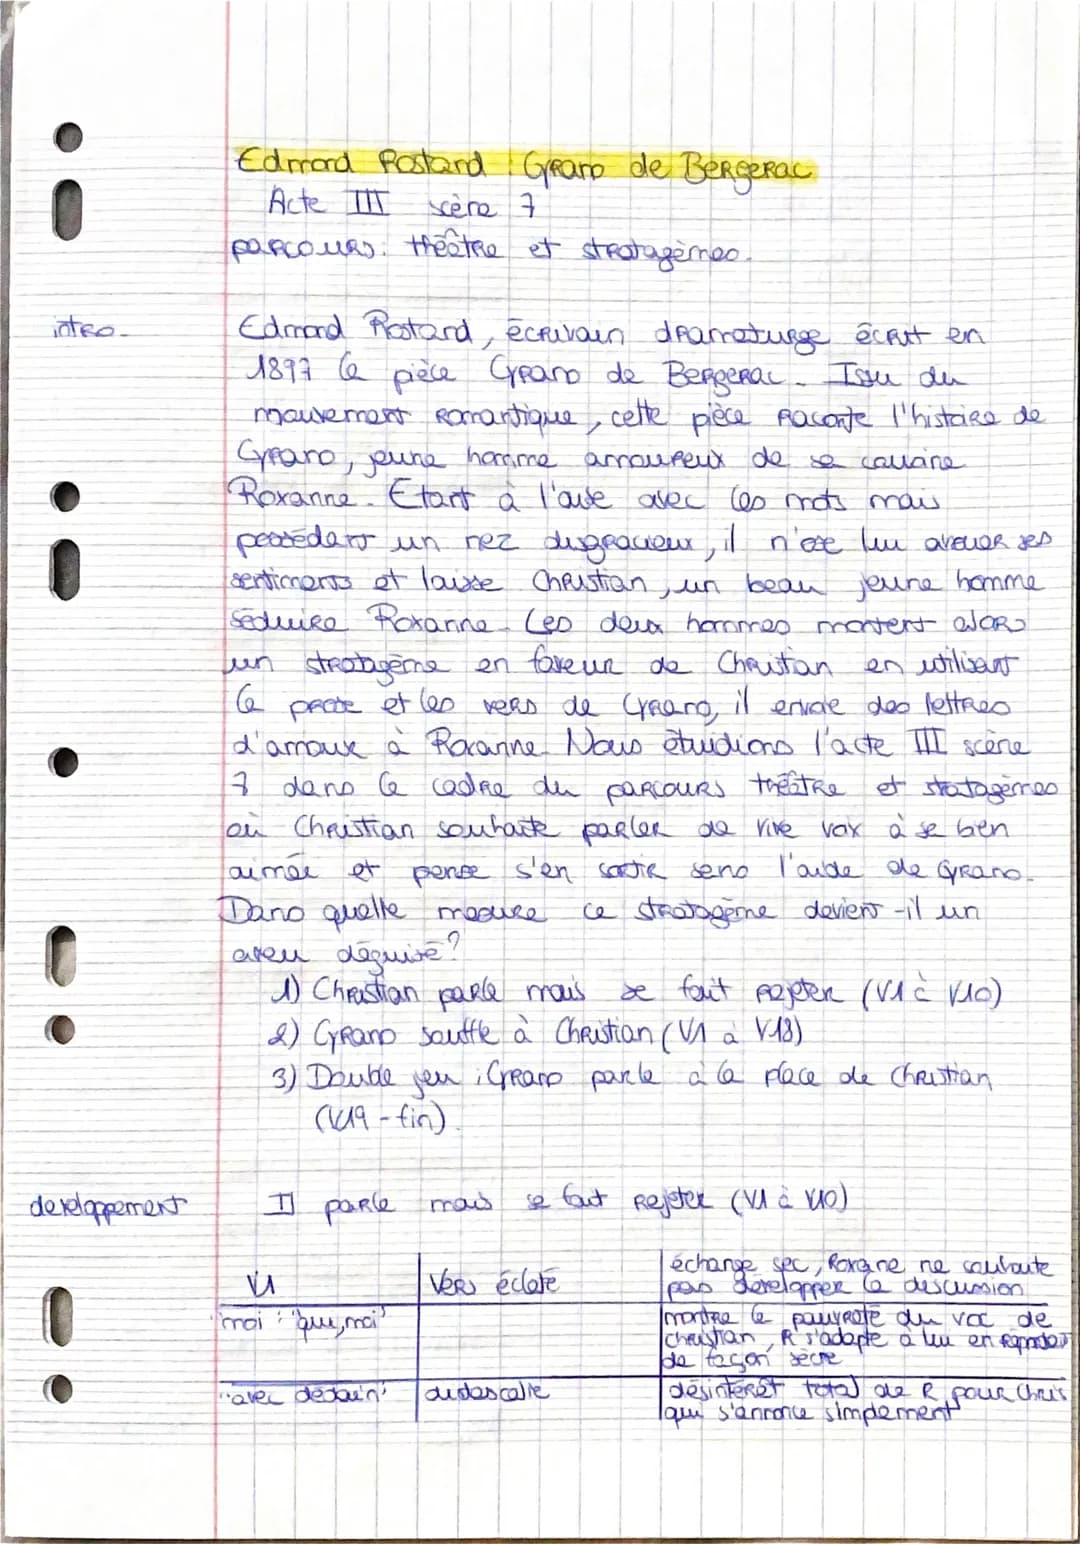 Edmond Rostand : Cyrano de Bergerac
Acte III scène 7
parcours : théâtre et stratagèmes.
intro -
Edmond Rostand, écrivain dramaturge écrit en
1897 la pièce Cyrano de Bergerac. Issu du
mouvement romantique, cette pièce raconte l'histoire de
Cyrano, jeune homme amoureux de sa cousine
Roxanne. Etant à l'aise avec les mots mais
possédant un nez disgracieux, il n'ose lui avouer ses
sentiments et laisse Christian, un beau jeune homme
séduire Roxanne. Les deux hommes montent alors
un stratagème en faveur de Christian en utilisant
la et les vers de Cyrano, il envoie des lettres
d'amour à Roxanne. Nous étudions l'acte III scène
7 dans le cadre du parcours théâtre et stratagèmes
où Christian souhaite parler de vive voix à sa bien
aimée et pense s'en sortir sans l'aide de Cyrano.
Dans quelle mesure ce stratagème devient-il un
aveu déguisé ?
1) Christian parle mais se fait rejeter (V1 à V10)
2) Cyrano souffle à Christian (V1 à V18)
3) Double jeu : Cyrano parle à la place de Christian
(V19 - fin).
développement
I) parle mais se fait rejeter (V1 à V10)
V1 Vers éclaté échange sec, Roxane ne souhaite
pas développer la discussion
moi : "qui, moi" montre la pauvreté du voc de
Christian, R s'adapte à lui en répondant
de façon sèche
"avec dédain" didascalie désintérêt total de R pour Chris
qui s'annonce simplement